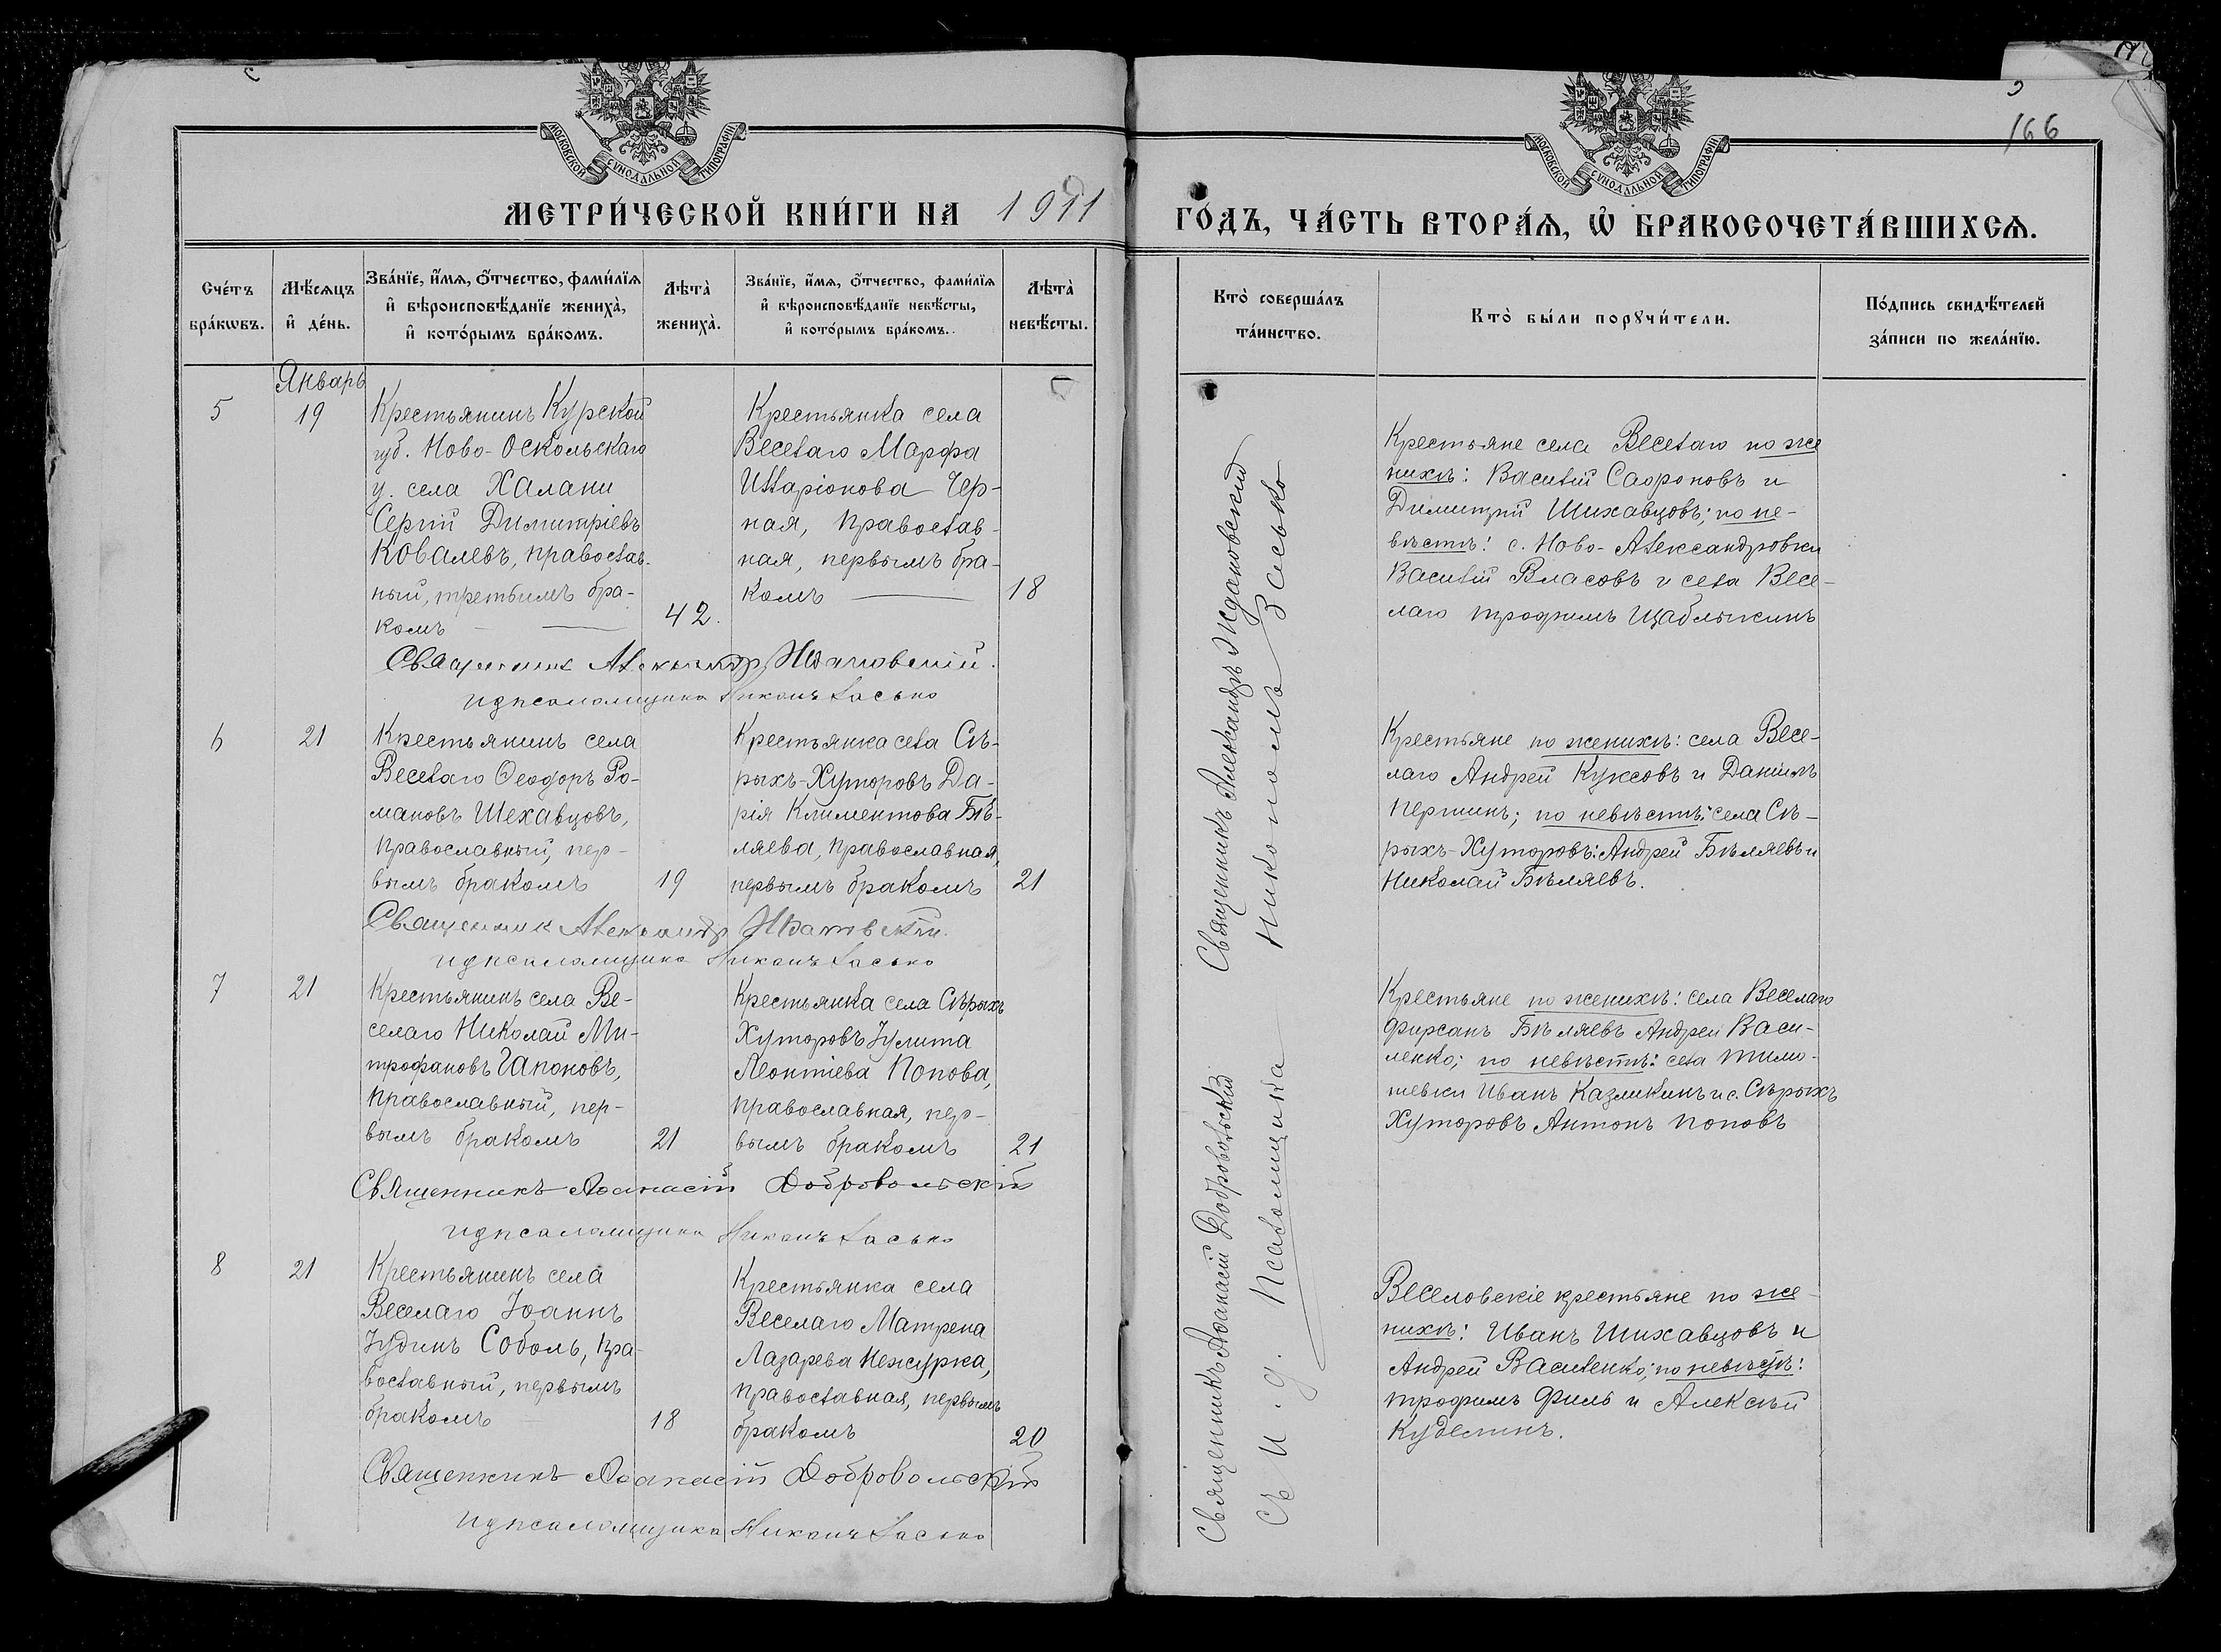 166
МОСКОВСКОЙ СѴНОДАЛЬНОЙ ТИПОГРАФІИ
МОСКОВСКОЙ СѴНОДАЛЬНОЙ ТИПОГРАФІИ
МЕТРИ́ЧЕСКОЙ КНИ́ГИ НА 1911
ГО́ДЪ, ЧА́СТЬ ВТОРА́Ѧ, Ѡ БРАКОСОЧЕТА́ВШИХСѦ.
Сче́тъ бра́кѡвъ.
Мѣ́сѧцъ и де́нь.
Зва́нїе, и́мѧ, о́тчество, фами́лїѧ
и вѣроисповѣ́данїе жениха̀,
и кото́рымъ бра́комъ.
Лѣта̀ жениха̀.
Зва́нїе, и́мѧ, о́тчество, фами́лїѧ
и вѣроисповѣ́данїе невѣ́сты,
и кото́рымъ бра́комъ.
Лѣта̀ невѣ́сты.
Кто̀ соверша́лъ
та́инство.
Кто̀ бы́ли порꙋчи́тели.
По́дпись свидѣ́телей
за́писи по жела́нїю.
Январь
5
19
Крестьянинъ Курской
губ. Ново-Оскольскаго
у. села Халани
Сергій Димитріевъ
Ковалевъ, православ-
ный, третьимъ бра-
комъ
42.
Крестьянка села
Веселаго Марфа
Илларіонова Чер-
ная, православ-
ная, первымъ бра-
комъ
18
Крестьяне села Веселаго по же
нихѣ: Василій Сафроновъ и
Димитрій Шихавцовъ; по не-
вѣстѣ: с. Ново-Александровки
Василій Власовъ и села Весе-
лаго Трофимъ Щаблыкинъ
Священник Александр Ждановскій.
И д псаломщика Никонъ Засько
6
21
Крестьянинъ села
Веселаго Ѳеодоръ Ро-
мановъ Шехавцовъ,
православный, пер-
вымъ бракомъ
19
Крестьянка села Сѣ-
рыхъ-Хуторовъ Да-
рія Климентова Бѣ-
ляева, православная,
первымъ бракомъ
21
Крестьяне по женихѣ: села Весе-
лаго Андрей Куксовъ и Даніилъ
Першинъ; по невѣстѣ: села Сѣ-
рыхъ-Хуторовъ: Андрей Бѣляевъ и
Николай Бѣляевъ.
Священник Александр Ждановскій.
И д псаломщика Никонъ Засько
7
21
Крестьянинъ села Ве-
селаго Николай Ми-
трофановъ Гапоновъ,
православный, пер-
вымъ бракомъ
21
Крестьянка села Сѣрыхъ
Хуторовъ Іулита
Леонтіева Попова,
православная, пер-
вымъ бракомъ
21
Крестьяне по женихѣ: села Веселаго
Фирсанъ Бѣляевъ Андрей Васи-
ленко; по невѣстѣ: села Тимо-
шевки Иванъ Казликинъ и с. Сѣрыхъ
Хуторовъ Антонъ Поповъ
Священникъ Аѳанасій Добровольскій
И д псаломщика Никонъ Засько
8
21
Крестьянинъ села
Веселаго Іоаннъ
Іудинъ Соболь, пра-
вославный, первымъ
бракомъ
18
Крестьянка села
Веселаго Матрена
Лазарева Нежурка,
православная, первымъ
бракомъ
20
Веселовскіе крестьяне по же-
нихѣ: Иванъ Шихавцовъ и
Андрей Василенко; по невѣстѣ:
Трофимъ Филь и Алексѣй
Куделинъ.
Священникъ Аѳанасій Добровольскій
И д псаломщика Никонъ Засько
Священникъ Аѳанасій Добровольскій Священникъ Александръ Ждановскій
съ И. д. Псаломщика Никономъ Засько